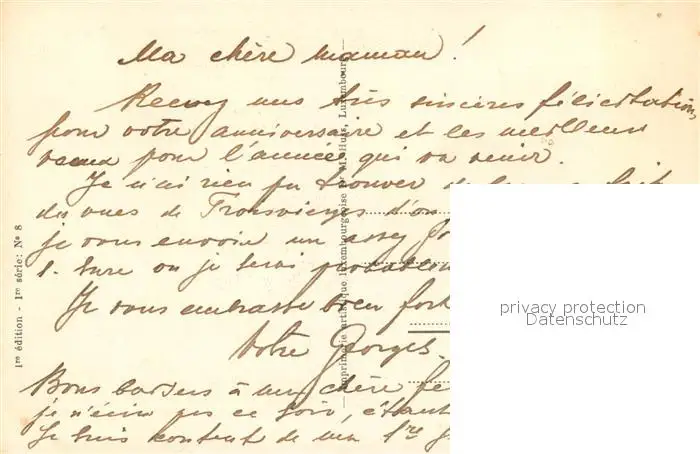 Ma chère maman !
Recevez mes très sincères félicitations,
pour votre anniversaire et les meilleurs
vœux pour l'année qui va venir.
Je n'ai rien pu trouver de
des vues de Troisvierges d'où
je vous envoie un assez
s. Sure où je serai
Je vous embrasse bien fort
Votre Georges.
Bons baisers à ma chère
je n'écris pas ce soir, étant
Je suis content de ma 1re
1re édition - 1re série: Nº 8
Imprimerie artistique luxembourgeoise M. Huss, Luxembourg
privacy protection
Datenschutz